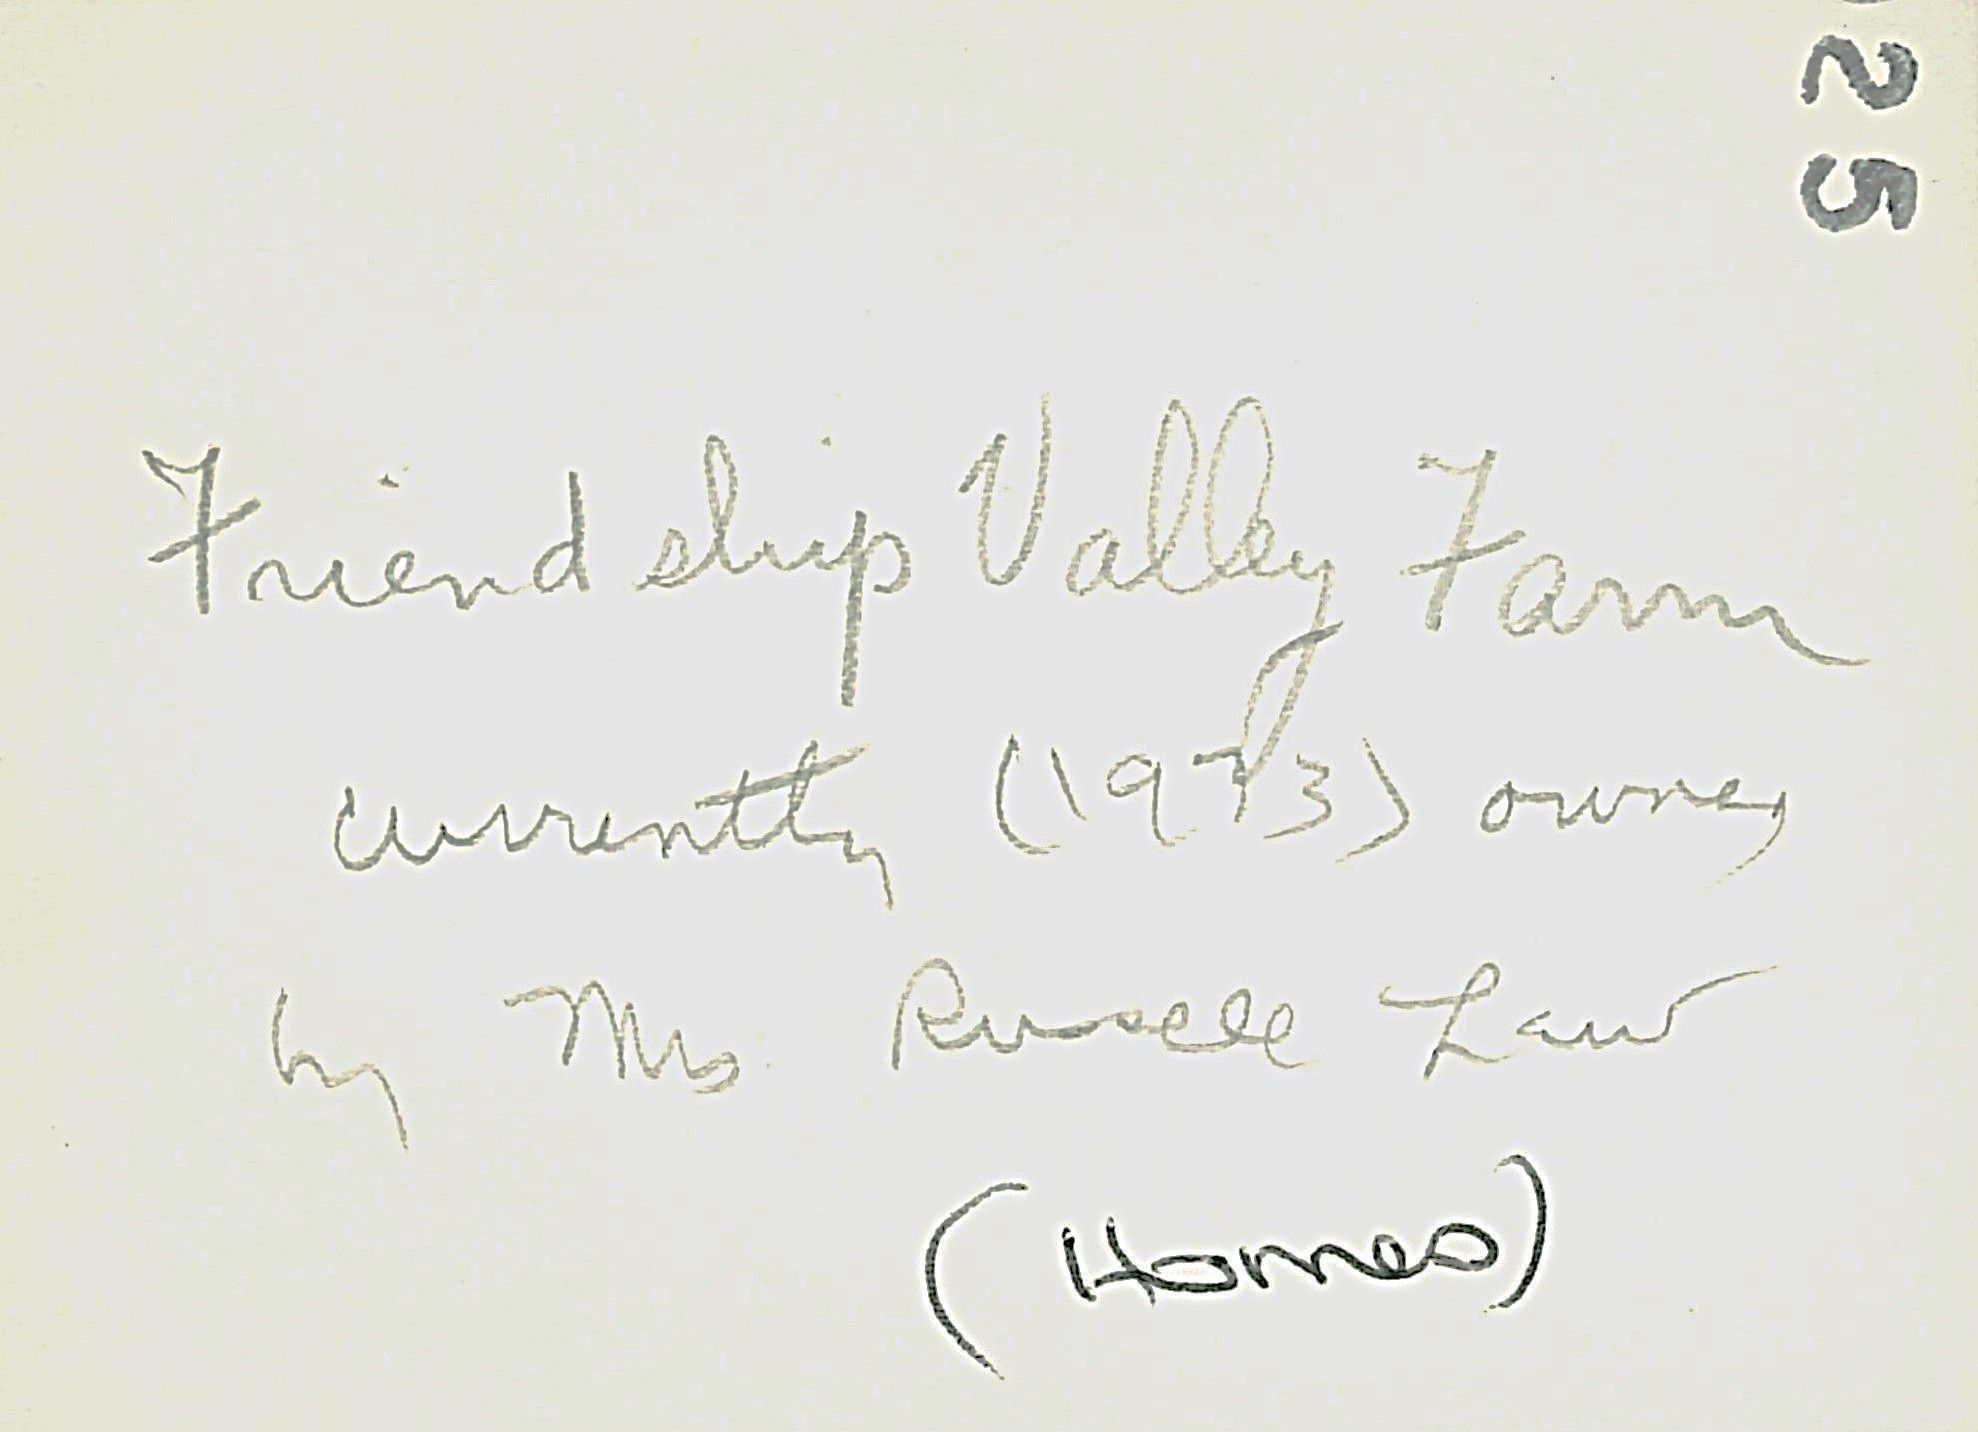 25
Friendship Valley Farm
currently (1973) owned
by Mrs. Russell Law
(Homes)